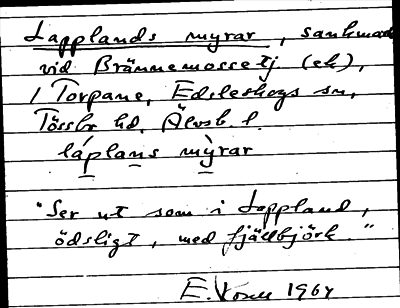 Lapplands myrar, sankmark
vid Brännemossetj (ek),
i Torpane, Edsleskogs sn,
Tössbo hd, Älvsb. l.
láplans mỳrar
"Ser ut som i Lappland,
ödsligt, med fjällbjörk."
E. 1964